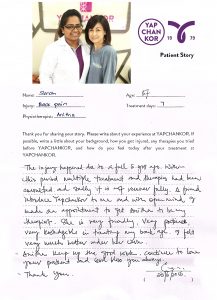 YAP CHANKOR
YAP
CHAN
KOR
1979
Patient Story
Name: Sharon
Age: 57
Injury: Back pain
Treatment days: 7
Physiotherapist: Anisha
Thank you for sharing your story. Please write about your experience at YAPCHANKOR. If
possible, write a little about your background, how you get injured, any therapies you tried
before YAPCHANKOR, and how do you feel today after your treatment at
YAPCHANKOR.
The injury happened due to a fall 5 yrs ago. Within
this period multiple treatment and therapies had been
introduce Yapchankor to me and with open mind, I
made an appointment to get Anisha to be my
therapist. She is very friendly, very patient,
very knowledgeable in treating my back pain. I felt
very much better under her care.
Anisha keep up the good work, continue to love
your patients and God bless you always.
Thank you.